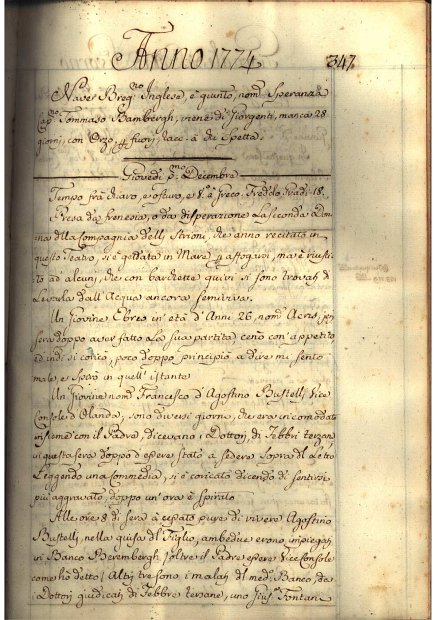 Anno 1774
347
Nave Brig.no Inglese, è giunto, nom.o Speranza
Cap.no Tommaso Bambergh, viene di Giorgenti, manca 28
giorni, con Orzo, fuori, racc. à di Spetta.
Giovedì p.mo Decembre
Tempo frà chiaro, e oscuro, e V.to è Greco. Fred.do Gradi 18.
Presa da frenesia, o da disperazione La Seconda Don
na della Compagnia delli Strioni, che anno recitato in
questo Teatro, si è gettata in Mare p affogarsi, ma è riusci
to ad alcuni, che con barchette quivi si sono trovati di
Levarla dall'Acqua ancora semiviva.
Un Giovine Ebreo in età d'Anni 26, nom.o Acris, jer
sera doppo aver fatto La sua partita cenò con appetito
ed indi si coricò, poco doppo principiò a dire mi sento
male, e spirò in quell'istante
Un Giovine nom.o Francesco d'Agostino Bustelli Vice
Console d'Olanda, sono diversi giorni, che era incomodato
insieme con il Padre, dicevano i Dottori di Febbri terzane,
questa sera doppo d'essere stato a sedere sopra il Letto
Leggendo una Commedia, si è coricato dicendo di sentirsi
più aggravato, doppo un'ora è spirato
Alle ore 8 di sera à cessato pure di vivere Agostino
Bustelli, nella guisa del Figlio, ambedue erono impiegati
in Banco Berembergh, oltre il Padre essere ViceConsole
come hò detto. Altri tre sono i malati del med.o Banco, da
Dottori giudicati di Febbre terzane, uno Gius.e Fontani